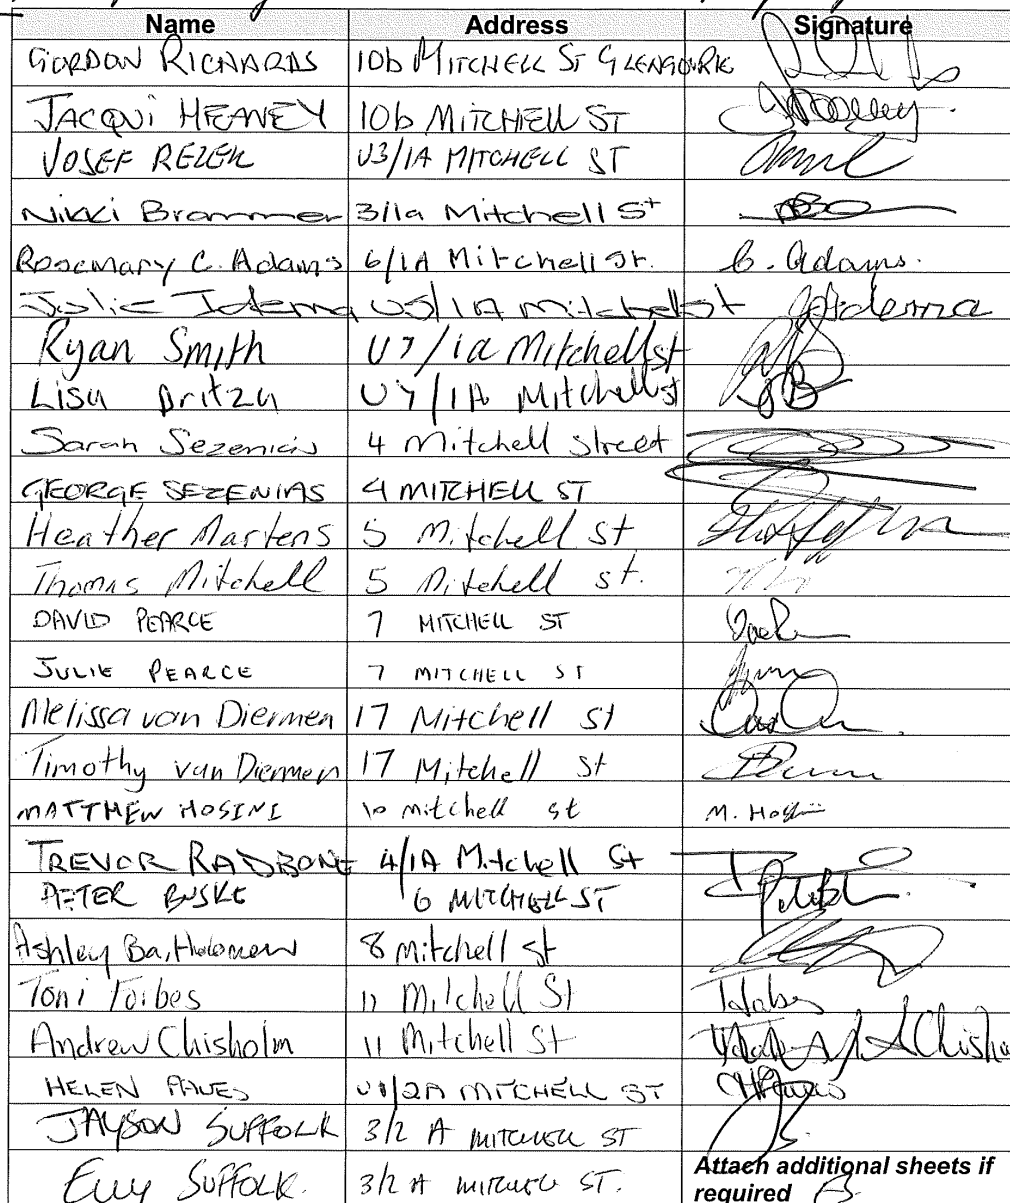 Name Address Signature
GORDON RICHARDS 10b MITCHELL ST GLENGOWRIE
JACQUI HEANEY 10b MITCHELL ST
JOSEF REZEK U3/1A MITCHELL ST
Nikki Brammer 3/1a Mitchell St
Rosemary C. Adams 6/1A Mitchell St. C. Adams.
Julie Idema U5/1A Mitchell st Jidema
Ryan Smith U7/1a Mitchell st
Lisa Britza U4/1A Mitchell st
Sarah Sezenias 4 Mitchell street
GEORGE SEZENIAS 4 MITCHELL ST
Heather Martens 5 Mitchell St
Thomas Mitchell 5 Mitchell st.
DAVID PEARCE 7 MITCHELL ST
JULIE PEARCE 7 MITCHELL ST
Melissa van Diermen 17 Mitchell St
Timothy van Diermen 17 Mitchell St
MATTHEW HOSINI 10 mitchell st M. Hosini
TREVOR RADBONE 4/1A Mitchell St
PETER BUSKE 6 MITCHELL ST
Ashley Bartholomew 8 mitchell st
Toni Forbes 11 Mitchell St
Andrew Chisholm 11 Mitchell St
HELEN U1/2A MITCHELL ST
JAYSON SUFFOLK 3/2 A MITCHELL ST
SUFFOLK. 3/2 A MITCHELL ST.
Attach additional sheets if
required